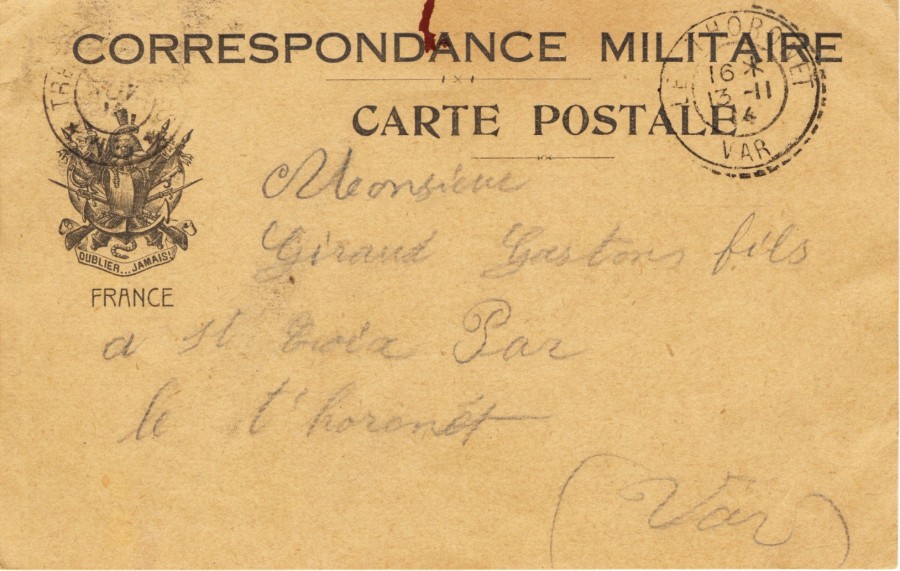 CORRESPONDANCE MILITAIRE
CARTE POSTALE
LE THORONET
16 *
13 -11
14
VAR
OUBLIER...JAMAIS!
FRANCE
Monsieur
Giraud Gastons fils
a st Croix Par
le t'horonet
(Var)